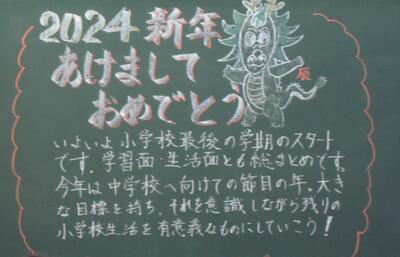 2024 新年
あけまして
おめでとう
辰
いよいよ小学校最後の学期のスタート
です。学習面・生活面とも総まとめです。
今年は中学校へ向けての節目の年。大き
な目標を持ち、それを意識しながら残りの
小学校生活を有意義なものにしていこう！